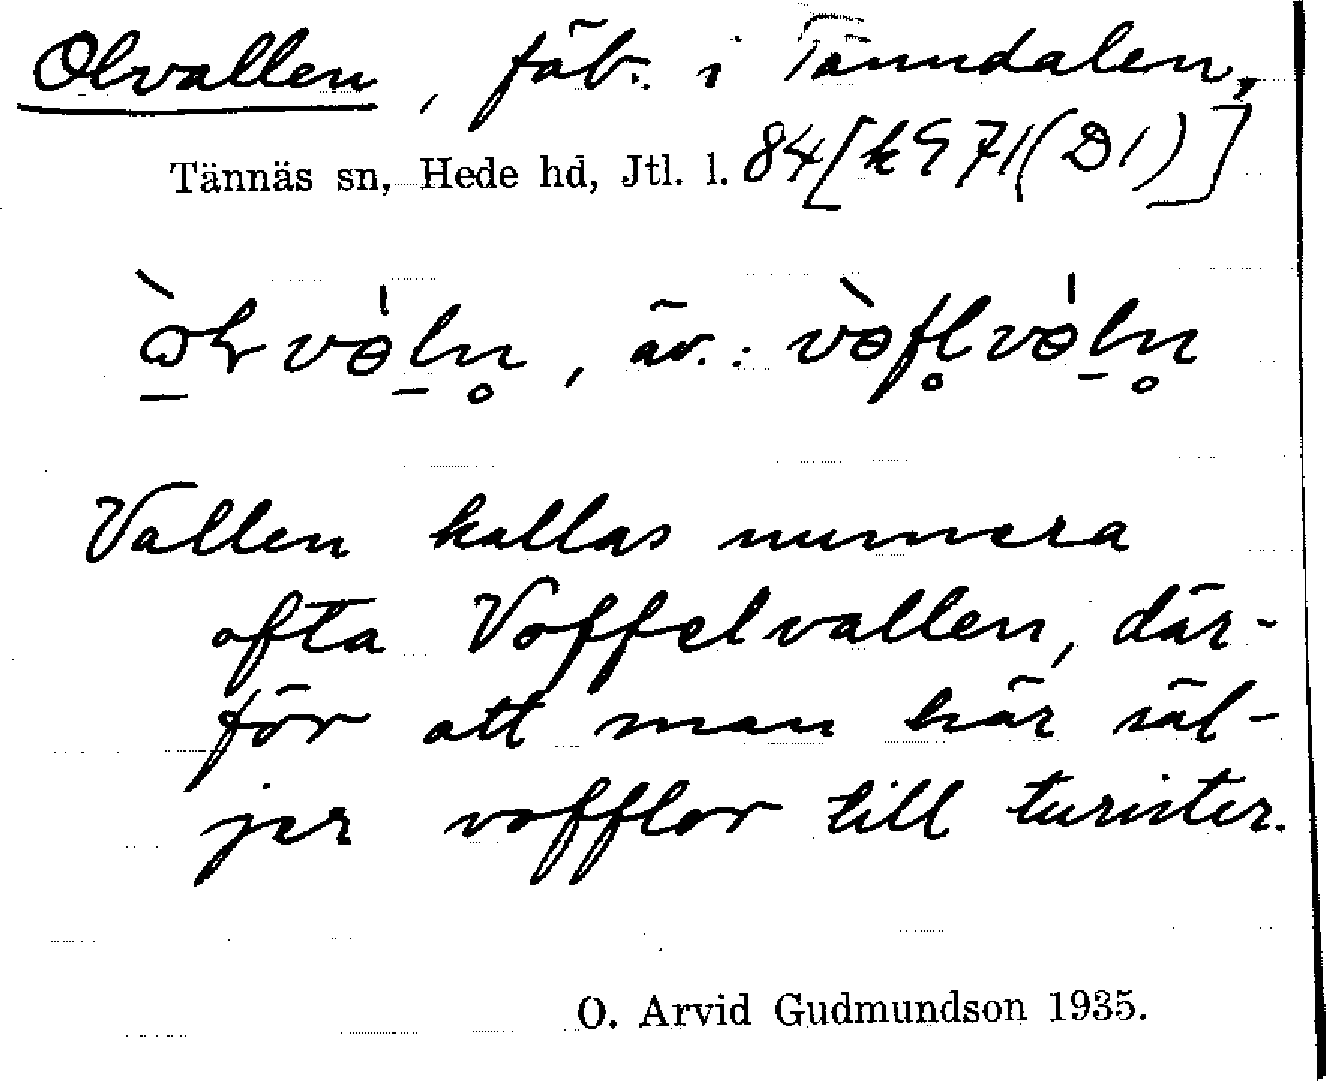 Olvallen, fäb. i Tänndalen,
Tännäs sn, Hede hd, Jtl. l. 84 [k 971 (D1)]
, äv.:
Vallen kallas numera
ofta Voffelvallen, där-
för att man här säl-
jer vofflor till turister.
O. Arvid Gudmundson 1935.